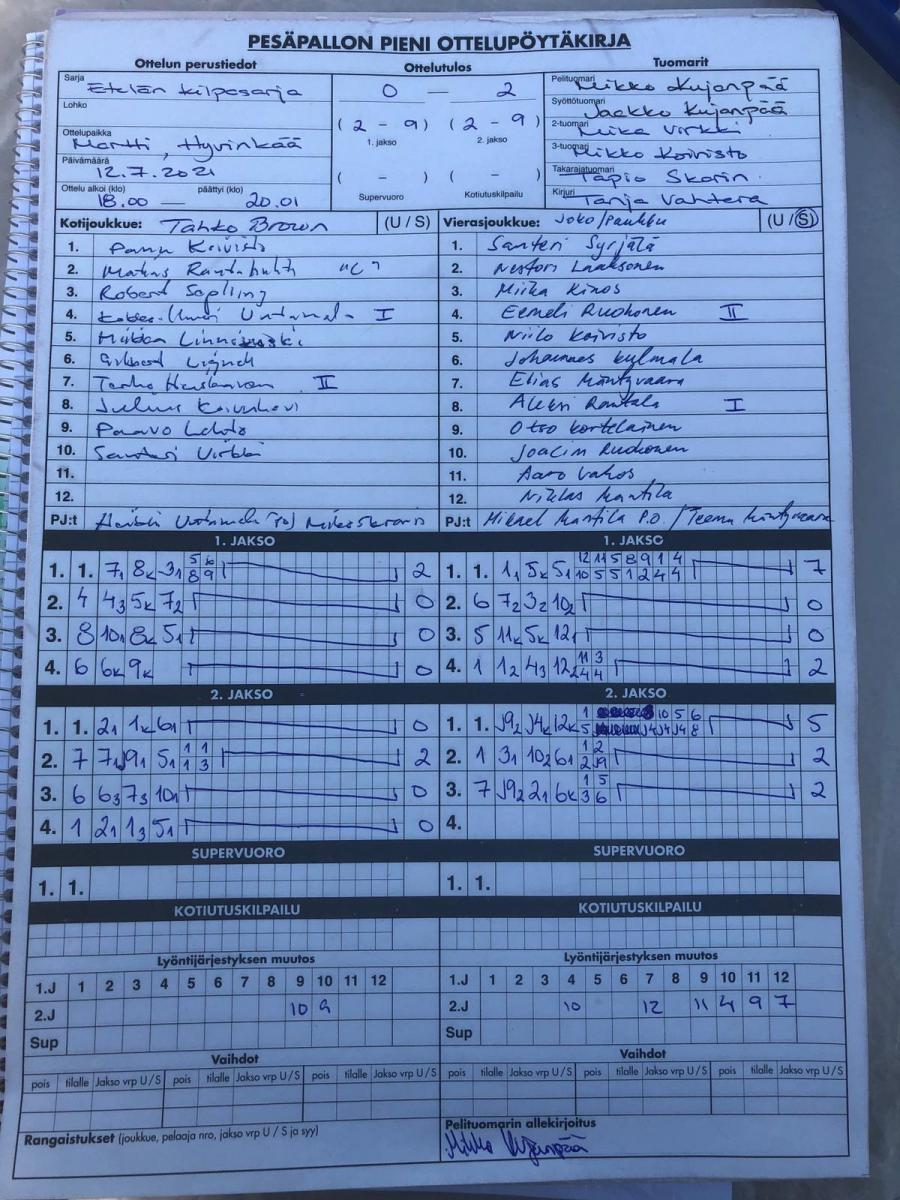 PESÄPALLON PIENI OTTELUPÖYTÄKIRJA
Ottelun perustiedot
Sarja
Etelän kilpasarja
Lohko
Ottelupaikka
Martti, Hyvinkää
Päivämäärä
12.7.2021
Ottelu alkoi (klo) päättyi (klo)
18.00 — 20.01
Ottelutulos
0 — 2
(2 - 9) (2 - 9)
1. jakso 2. jakso
( - ) ( - )
Supervuoro Kotiutuskilpailu
Tuomarit
Pelituomari Mikko Kujanpää
Syöttötuomari Jaakko Kujanpää
2-tuomari Mika Virkki
3-tuomari Mikko Koivisto
Takarajatuomari Tapio Skarin
Kirjuri Tanja Vahtera
Kotijoukkue: Tahko Brown (U / S)
1. Koivisto
2. "C"
3. Robert
4. I
5.
6.
7. II
8. Julius
9. Paavo Lehto
10. Santeri Virkki
11.
12.
PJ:t
Vierasjoukkue: Joko/Pankku (U / S)
1. Santeri Syrjälä
2. Nestori Laaksonen
3. Miika Kinos
4. Eemeli Ruohonen II
5. Niilo Koivisto
6. Johannes Kylmälä
7. Elias Mäntyvaara
8. Aleksi Rantala I
9. Otso Kortelainen
10. Joacim Ruohonen
11. Aaro Vahos
12. Niklas Mantila
PJ:t Mikael Mantila P.O. / Teemu Mäntyvaara
1. JAKSO
1. 1. 7₁ 8ₖ 3₁ 5 10 2
8 9
2. 4 4₃ 5ₖ 7₂ 0
3. 8 10₁ 8ₖ 5₁ 0
4. 6 6ₖ 9ₖ 0
1. JAKSO
1. 1. 1₁ 5ₖ 5₁ 12 11 5 8 9 1 4 7
10 5 5 1 2 4 4
2. 6 7₂ 3₂ 10₂ 0
3. 5 11ₖ 5ₖ 12₁ 0
4. 1 1₂ 4₃ 12₂ 11 3 2
4 4
2. JAKSO
1. 1. 2₁ 1ₖ 6₁ 0
2. 7 7₁ J9₁ 5₁ 1 1 2
1 3
3. 6 6₃ 7₃ 10₁ 0
4. 1 2₁ 1₃ 5₁ 0
2. JAKSO
1. 1. J9₂ J4ₖ 12ₖ 1 10 5 6 5
5 J4 J4 J4 8
2. 1 3₁ 10₂ 6₁ 1 2 2
2 J9
3. 7 J9₂ 2₁ 6ₖ 1 5 2
3 6
4.
SUPERVUORO
1. 1.
SUPERVUORO
1. 1.
KOTIUTUSKILPAILU
KOTIUTUSKILPAILU
Lyöntijärjestyksen muutos
1.J 1 2 3 4 5 6 7 8 9 10 11 12
2.J 10 9
Sup
Lyöntijärjestyksen muutos
1.J 1 2 3 4 5 6 7 8 9 10 11 12
2.J 10 12 11 4 9 7
Sup
Vaihdot
pois tilalle Jakso vrp U / S pois tilalle Jakso vrp U / S pois tilalle Jakso vrp U / S
Vaihdot
pois tilalle Jakso vrp U / S pois tilalle Jakso vrp U / S pois tilalle Jakso vrp U / S
Rangaistukset (joukkue, pelaaja nro, jakso vrp U / S ja syy)
Pelituomarin allekirjoitus
Mikko Kujanpää